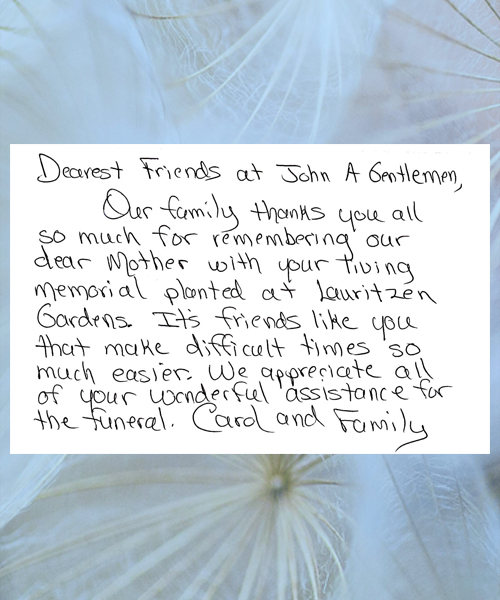 Dearest Friends at John A Gentlemen,
Our family thanks you all
so much for remembering our
dear Mother with your living
memorial planted at Lauritzen
Gardens. It's friends like you
that make difficult times so
much easier. We appreciate all
of your wonderful assistance for
the funeral. Carol and Family